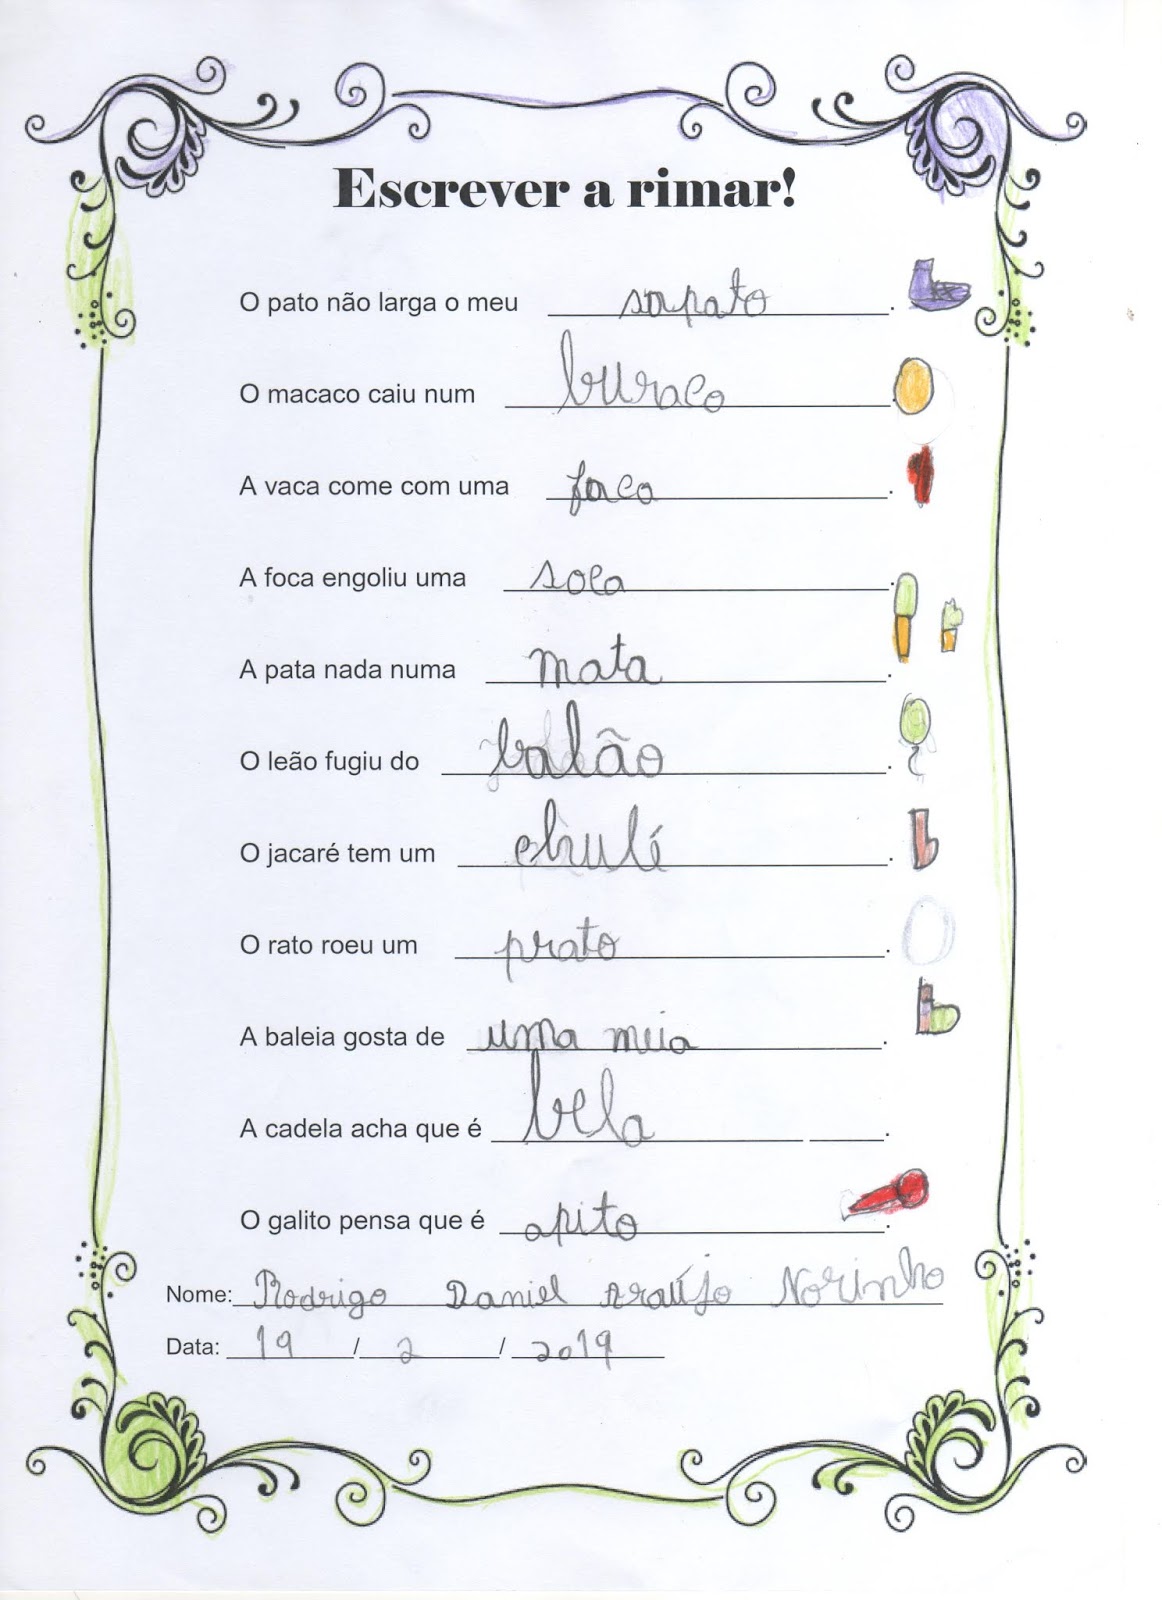 Escrever a rimar!
O pato não larga o meu sapato.
O macaco caiu num buraco.
A vaca come com uma faca.
A foca engoliu uma soca.
A pata nada numa mata.
O leão fugiu do balão.
O jacaré tem um chulé.
O rato roeu um prato.
A baleia gosta de uma meia.
A cadela acha que é bela.
O galito pensa que é apito.
Nome: Rodrigo Daniel Araújo Norinho
Data: 19 / 2 / 2019